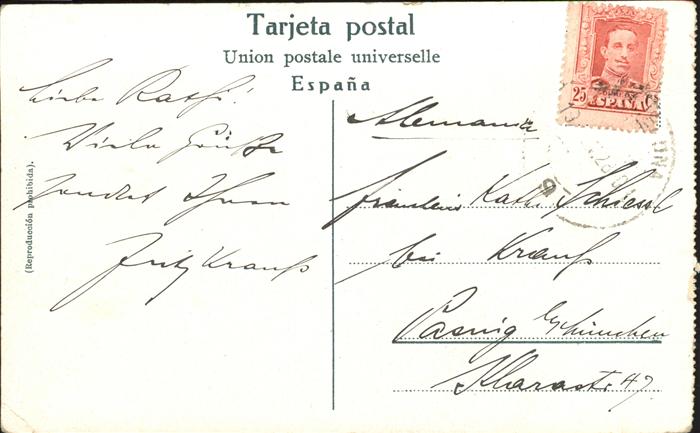 Tarjeta postal
Union postale universelle
España
(Reproducción prohibida).
Liebe Kathi!
Viele Grüße
sendet Ihnen
Fritz Krauß
25 ESPAÑA
Alemania
Fräulein Kathi Schiessl
bei Krauß
Pasing b/München
Klarastr. 47.